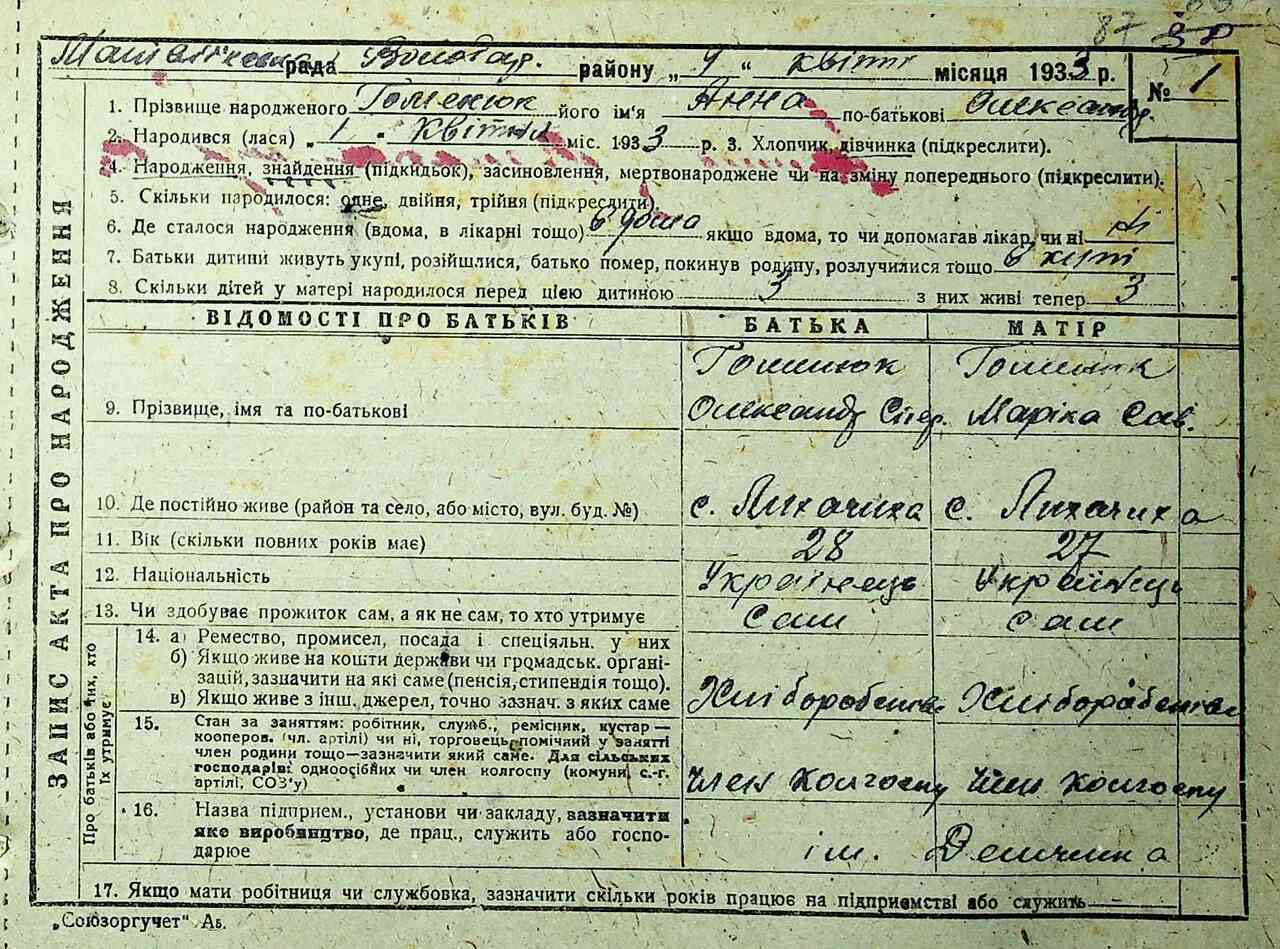 87 38
рада Володар. району „ 4 “ квітня місяця 1933 р.
№ 1
1. Прізвище народженого Гоменюк його ім'я Анна по-батькові Олександр.
2. Народився (лася) „ 1 - квітня міс. 1933 р. 3. Хлопчик, дівчинка (підкреслити).
4. Народження, знайдення (підкидьок), засиновлення, мертвонароджене чи на зміну попереднього (підкреслити).
5. Скільки народилося: одне, двійня, трійня (підкреслити).
6. Де сталося народження (вдома, в лікарні тощо) в дома якщо вдома, то чи допомагав лікар, чи ні ні
7. Батьки дитини живуть укупі, розійшлися, батько помер, покинув родину, розлучилися тощо в купі
8. Скільки дітей у матері народилося перед цією дитиною 3 з них живі тепер 3
ЗАПИС АКТА ПРО НАРОДЖЕННЯ
ВІДОМОСТІ ПРО БАТЬКІВ БАТЬКА МАТІР
Гоменюк Гоменюк
9. Прізвище, імя та по-батькові Олександр Маріка Сав.
10. Де постійно живе (район та село, або місто, вул. буд. №) с. Лихачиха с. Лихачиха
11. Вік (скільки повних років має) 28 27
12. Національність Українець Українець
13. Чи здобуває прожиток сам, а як не сам, то хто утримує Сам сам
Про батьків або тих, хто їх утримує
14. а) Ремество, промисел, посада і спеціяльн. у них
б) Якщо живе на кошти держави чи громадськ. орґані-
зацій, зазначити на які саме (пенсія, стипендія тощо).
в) Якщо живе з інш. джерел, точно зазнач. з яких саме Хліборобство Хліборобство
15. Стан за заняттям: робітник, служб., ремісник, кустар —
кооперов. (чл. артілі) чи ні, торговець, помічний у занятті
член родини тощо—зазначити який саме. Для сільських
господарів: одноосібних чи член колгоспу (комуни, с.-г.
артілі, СОЗ'у) Член колгоспу Член колгоспу
16. Назва підприєм., установи чи закладу, зазначити
яке виробництво, де прац., служить або госпо-
дарює ім.
17. Якщо мати робітниця чи службовка, зазначити скільки років працює на підприємстві або служить
„Союзоргучет“ Аь.